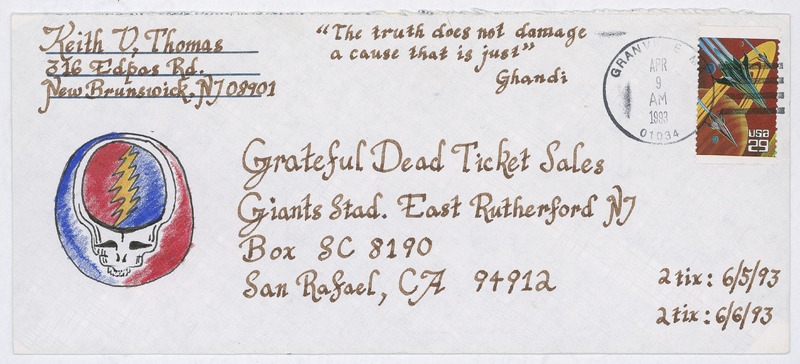 Keith V. Thomas
316 Edpas Rd.
New Brunswick, NJ 08901
"The truth does not damage
a cause that is just"
Ghandi
APR
9
AM
1993
01034
USA
29
Grateful Dead Ticket Sales
Giants Stad. East Rutherford NJ
Box SC 8190
San Rafael, CA 94912
2 tix: 6/5/93
2 tix: 6/6/93